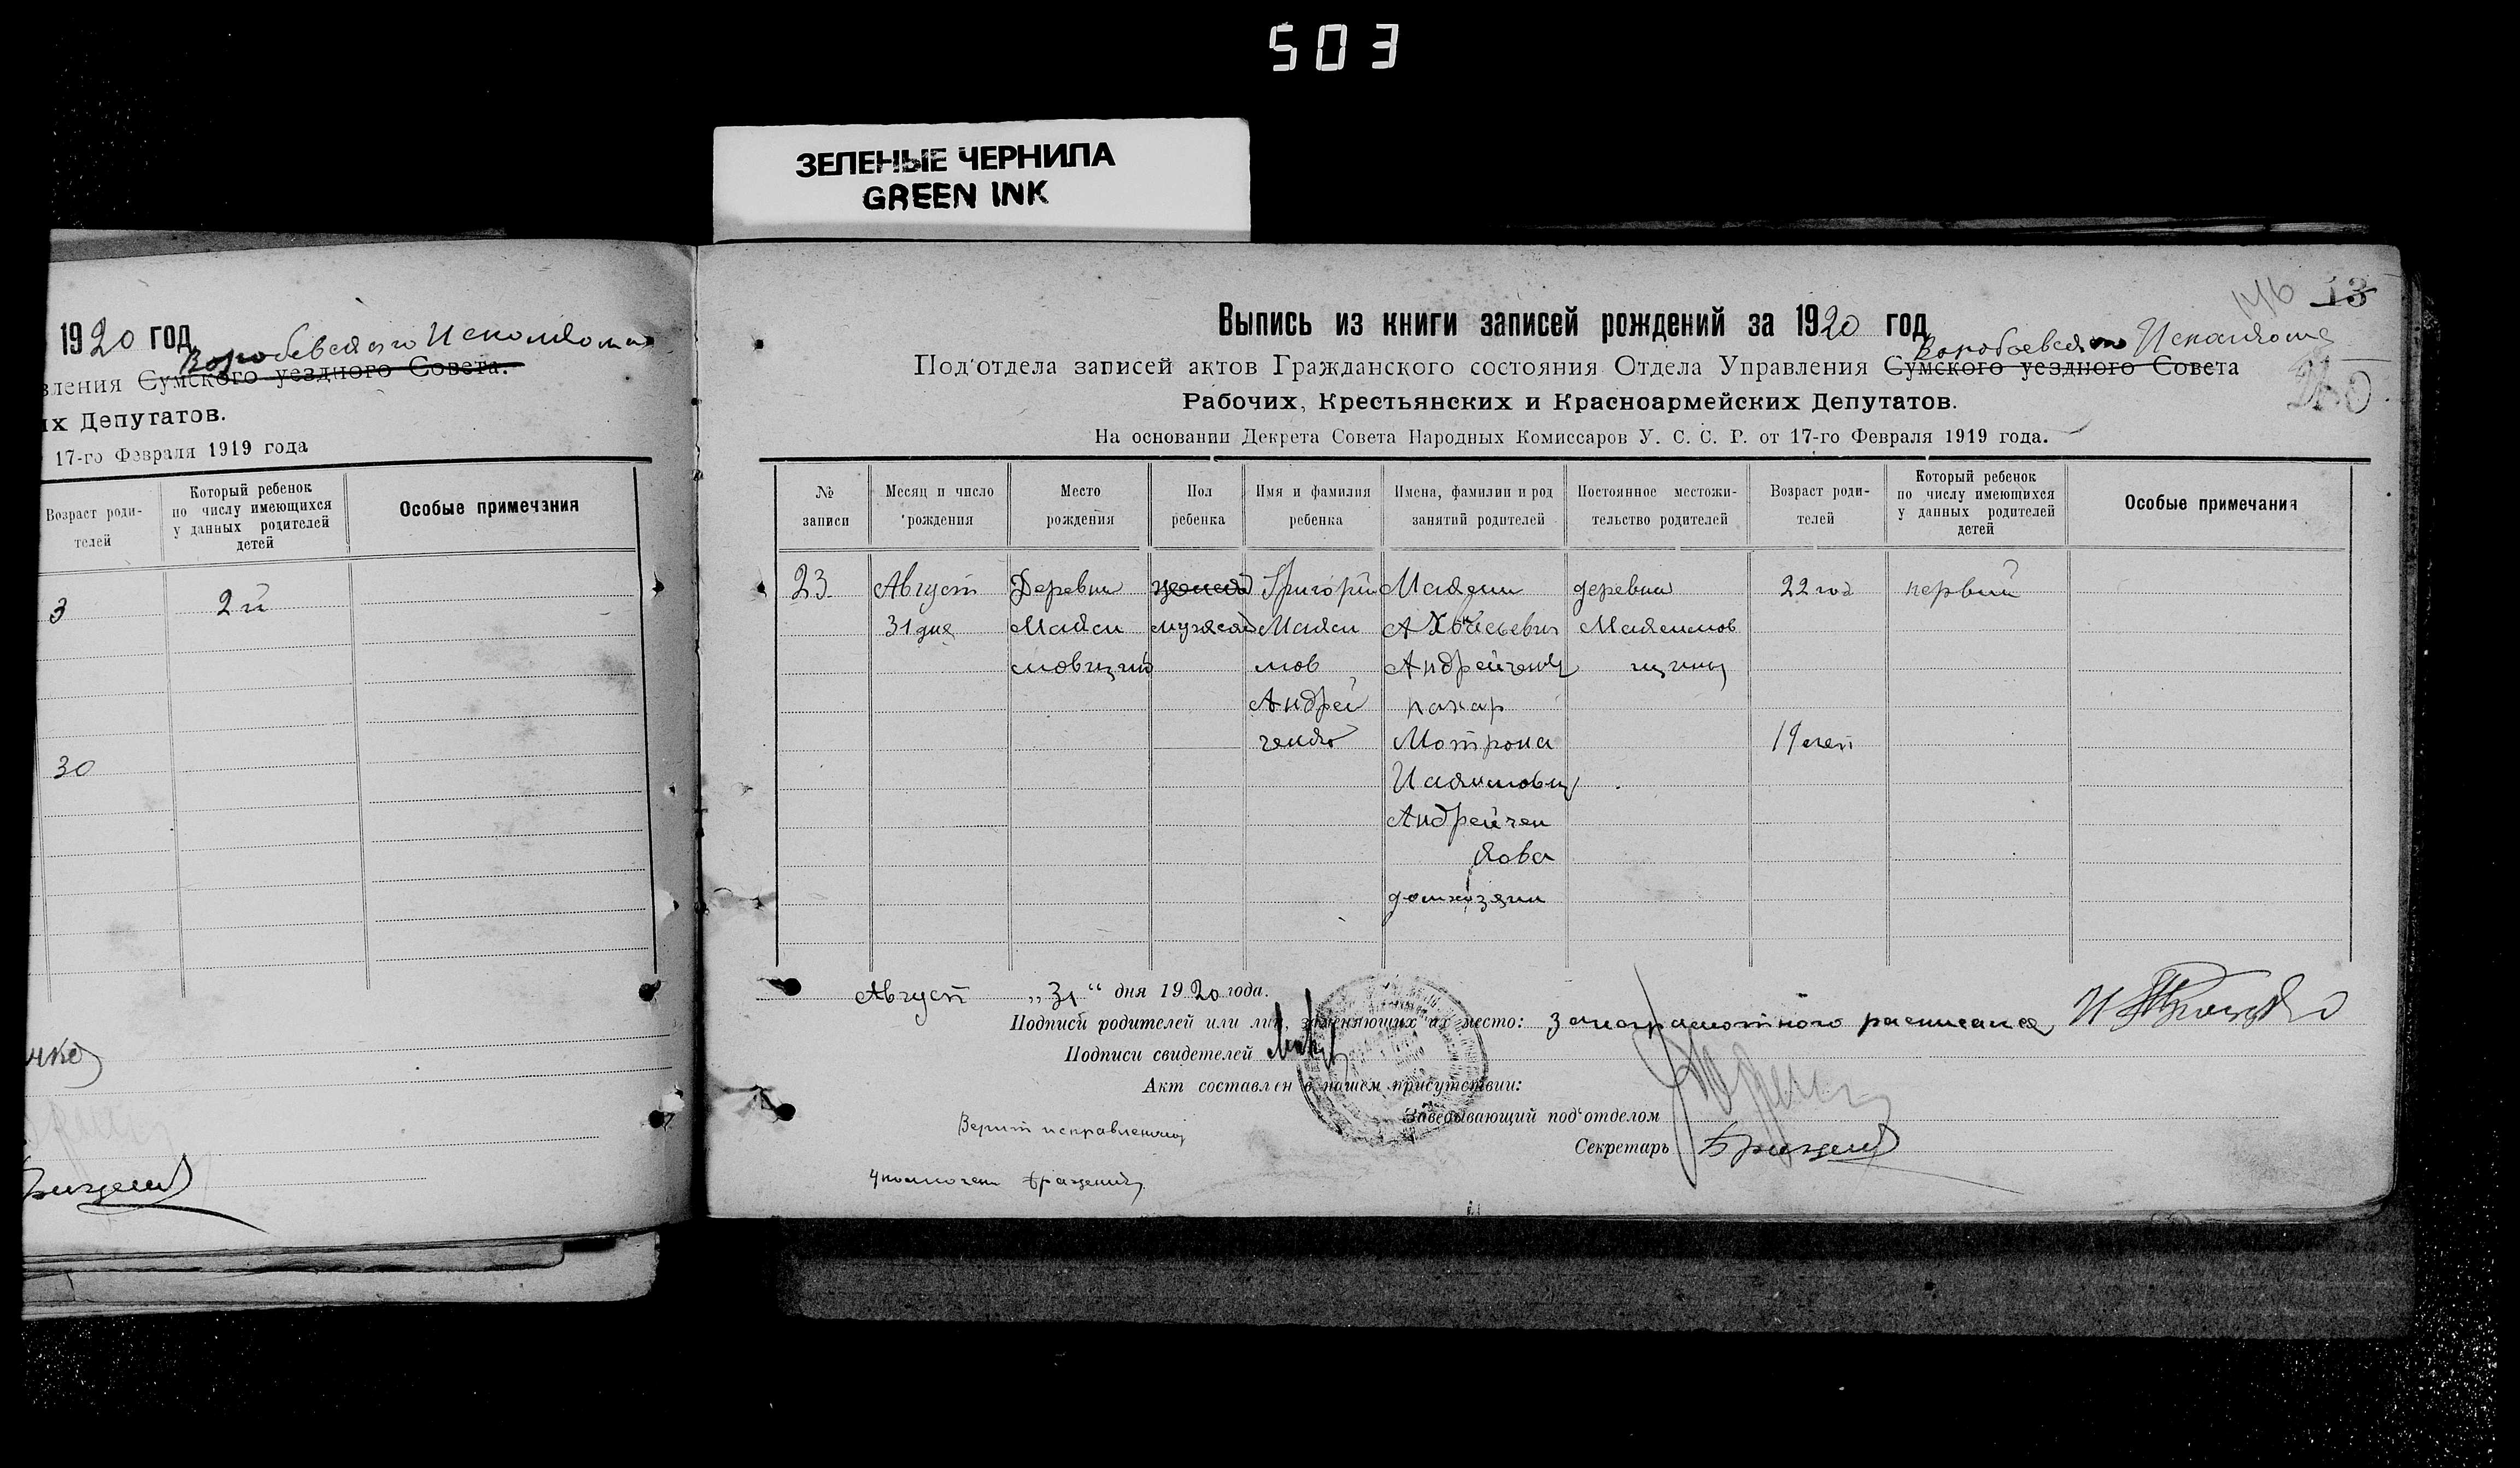 503
ЗЕЛЕНЫЕ ЧЕРНИЛА
GREEN INK
1920 год
Воробевского Исполкома
вления Сумского уездного Совета.
их Депутатов.
17-го Февраля 1919 года
Возраст роди-
телей
Который ребенок
по числу имеющихся
у данных родителей
детей
Особые примечания
3
2й
30
нко
13
Выпись из книги записей рождений за 1920 год
Воробьевского Исполкома
Под'отдела записей актов Гражданского состояния Отдела Управления Сумского уездного Совета
Рабочих, Крестьянских и Красноармейских Депутатов.
На основании Декрета Совета Народных Комиссаров У. С. С. Р. от 17-го Февраля 1919 года.
№
записи
Месяц и число
рождения
Место
рождения
Пол
ребенка
Имя и фамилия
ребенка
Имена, фамилии и род
занятий родителей
Постоянное местожи-
тельство родителей
Возраст роди-
телей
Который ребенок
по числу имеющихся
у данных родителей
детей
Особые примечания
23 Август Деревня Григорий Максим деревня 22 год первий
31 дня Макси мужской Макси Максимов
мовщина мов Андрейченко щина
Андрей пахар
ченко Мотрона 19 лет
Андрейчен
кова
Август „31“ дня 1920 года.
Подписи родителей или лиц, заменяющих их место: за неграмотного расписался
Подписи свидетелей
Акт составлен в нашем присутствии:
Заведывающий под'отделом
Секретарь